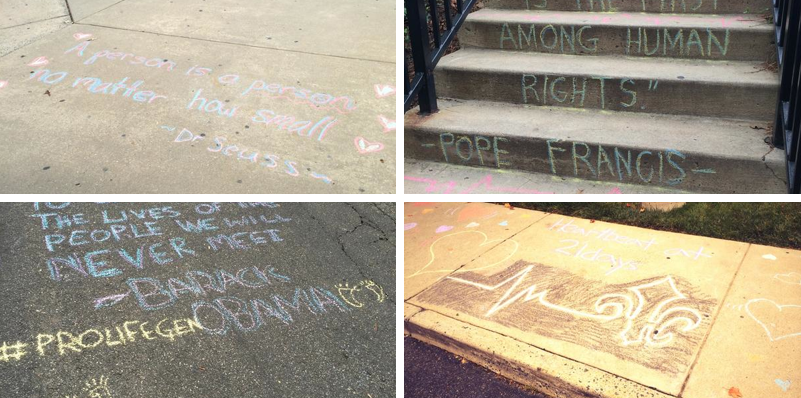 A person is a person
no matter how small
-Dr Seuss-
IS THE FIRST
AMONG HUMAN
RIGHTS."
-POPE FRANCIS-
THE LIVES OF THE
PEOPLE WE WILL
NEVER MEET
-BARACK
OBAMA
#PROLIFEGEN
Heartbeat at
21days